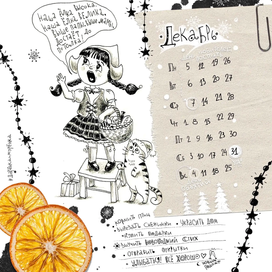 НАША ЁЛКА ВЫСОКА,
НАША ЁЛКА ВЕЛИКА,
ВЫШЕ МАМЫ, ВЫШЕ ПАПЫ
ДОСТАЁТ ДО
ПОТОЛКА
Декабрь
Пн 5 12 19 26
Вт 6 13 20 27
Ср 7 14 21 28
Чт 1 8 15 22 29
Пт 2 9 16 23 30
Сб 3 10 17 24 31
Вс 4 11 18 25
УКРАСИТЬ ДОМ
КУПИТЬ ПОДАРКИ
ОТПРАВИТЬ ОТКРЫТКИ
УЛЫБАТЬСЯ! ВСЁ ХОРОШО